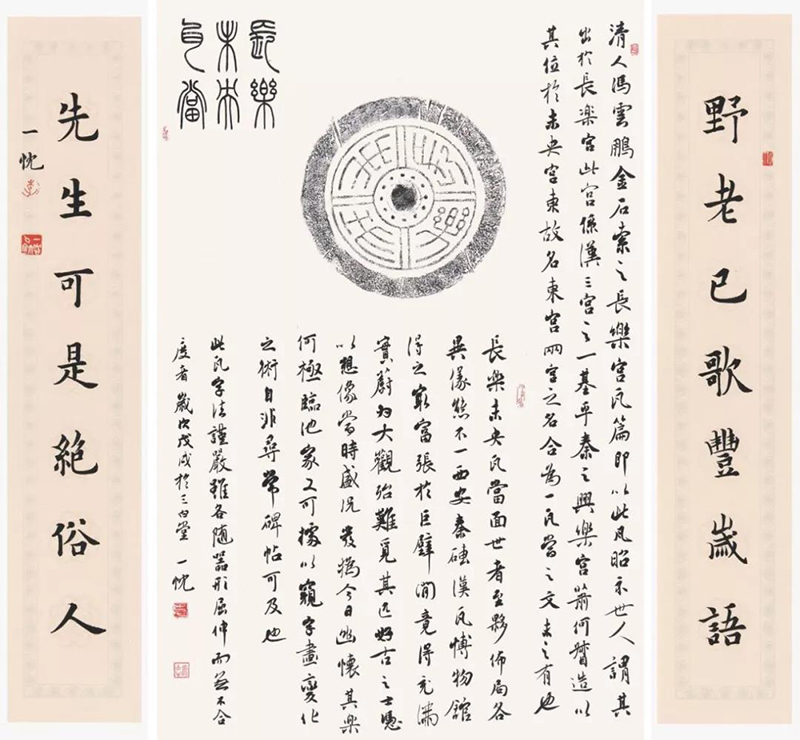 野老已歌豐歲語
長樂
未央
瓦當
清人馮雲鵬金石索之長樂宮瓦篇即以此瓦昭示世人謂其
出於長樂宮此宮係漢三宮之一基乎秦之興樂宮蕭何督造以
其位於未央宮東故名東宮兩宮之名合為一瓦當之文未之有也
長樂未央瓦當面世者至夥佈局各
異像態不一西安秦磚漢瓦博物館
得之最富張於巨壁間竟得充滿
實蔚為大觀殆難覓其匹好古之士憑
以想像當時盛況發揚今日幽懷其樂
何極臨池家又可據以窺字畫變化
之術自非尋常碑帖可及也
此瓦字法謹嚴雖各隨器形屈伸而無不合
度者歲次戊戌於三白堂一忱
先生可是絕俗人
一忱